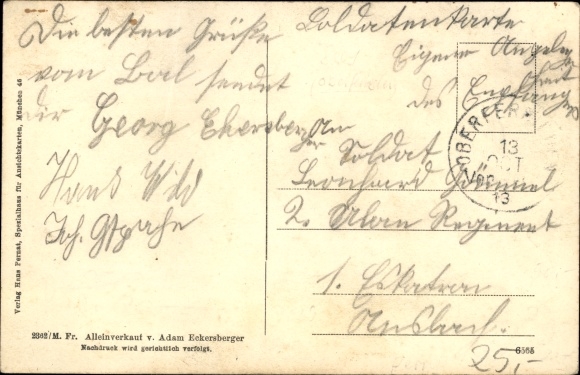 Die besten Grüße
vom Bal sendet
dir Georg Ekersberger
Hans Wild
Joh.
Soldatenkarte
Eigene Angelegenheit
des Empfängers
An
Soldat
Leonhard
2. Ulan Regiment
1. Eskatron
Ansbach.
OBERFER
13
OCT
13
Verlag Hans Pernat, Spezialhaus für Ansichtskarten, München 46
2362/M. Fr. Alleinverkauf v. Adam Eckersberger
Nachdruck wird gerichtlich verfolgt.
6565
25,-